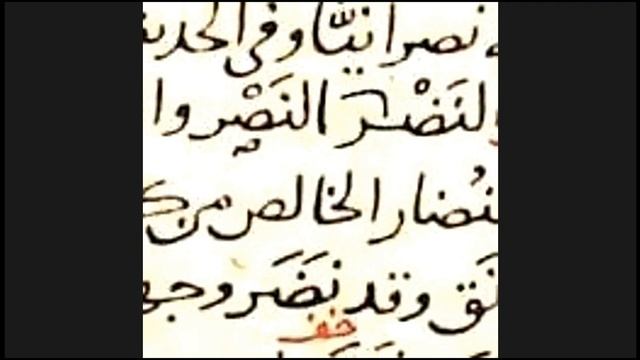 نصرانيًّا وفى الحديث
النَضْرَ النَصِْر وا
نُضار الخالص من
وقد نَضَر وجه
خف